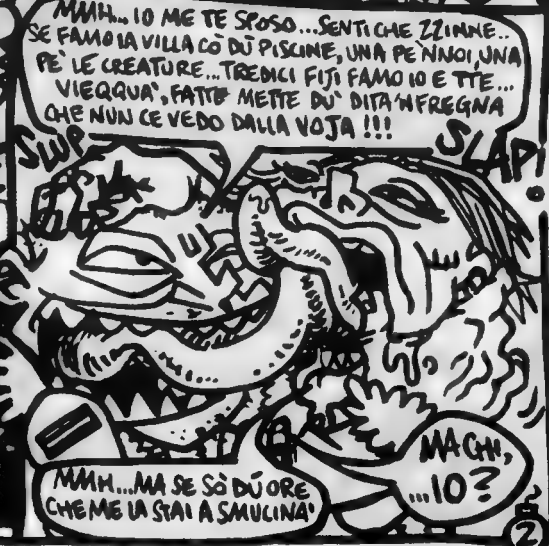 MMH... IO ME TE SPOSO... SENTI CHE ZZINNE..
SE FAMO LA VILLA CÒ DÙ PISCINE, UNA PE' NNOI, UNA
PE' LE CREATURE... TREDICI FIJI FAMO IO E TTE...
VIEQQUA', FATTE METTE DU' DITA 'N FREGNA
CHE NUN CE VEDO DALLA VOJA !!!
SLUP
SLAP!
MMH... MA SE SÒ DÙ ORE
CHE ME LA STAI A SMUCINA'
MA CHI,
... IO?
2